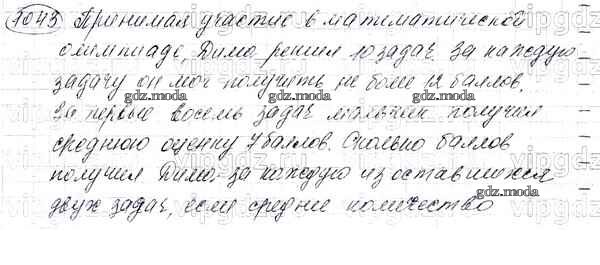 1043 Принимая участие в математической
олимпиаде, Дима решил 10 задач. За каждую
задачу он мог получить не более 12 баллов.
За первые восемь задач мальчик получил
среднюю оценку 7 баллов. Сколько баллов
получил Дима за каждую из оставшихся
двух задач, если среднее количество
gdz.moda
gdz.moda
gdz.moda
gdz.moda
vipgdz.ru
vipgdz.ru
vipgdz.ru